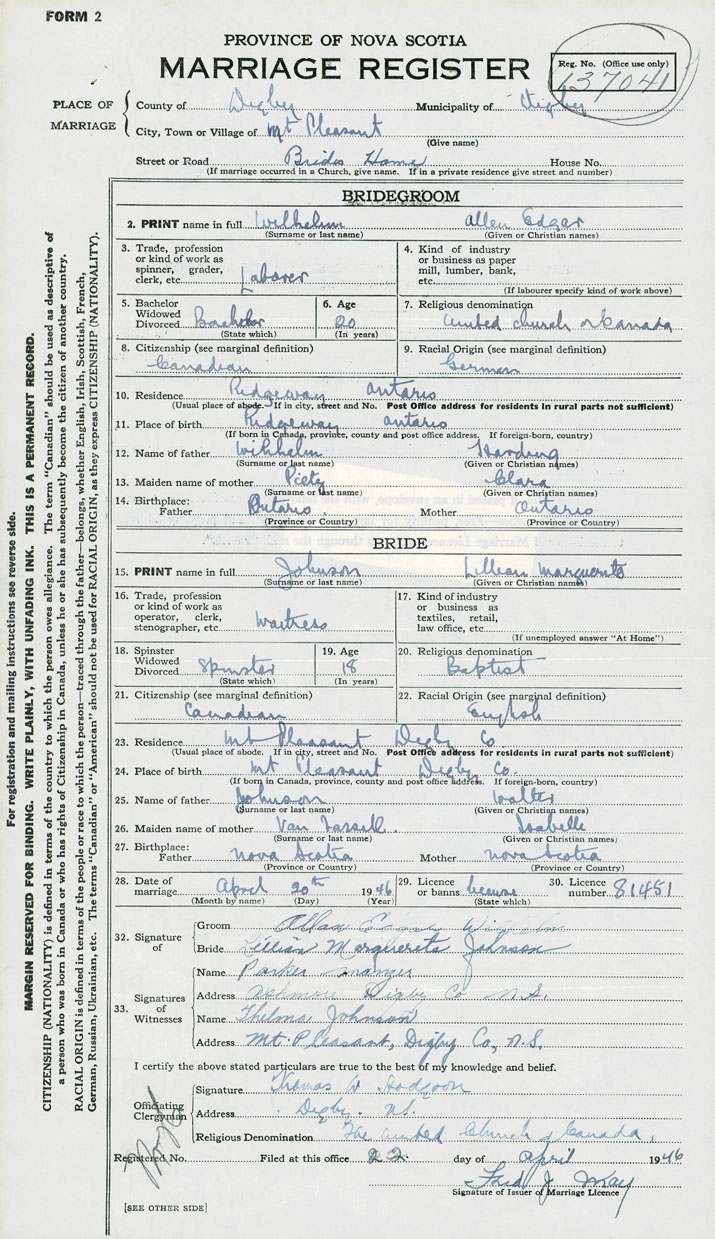 FORM 2
PROVINCE OF NOVA SCOTIA
MARRIAGE REGISTER
Reg. No. (Office use only)
137041
PLACE OF MARRIAGE
County of Digby Municipality of Digby
City, Town or Village of Mt Pleasant
(Give name)
Street or Road Brides Home House No.
(If marriage occurred in a Church, give name. If in a private residence give street and number)
BRIDEGROOM
2. PRINT name in full Wilhelm Allen Edgar
(Surname or last name) (Given or Christian names)
3. Trade, profession or kind of work as spinner, grader, clerk, etc. Laborer
4. Kind of industry or business as paper mill, lumber, bank, etc.
(If labourer specify kind of work above)
5. Bachelor Widowed Divorced Bachelor
(State which)
6. Age 20
(In years)
7. Religious denomination
United church of Canada
8. Citizenship (see marginal definition)
Canadian
9. Racial Origin (see marginal definition)
German
10. Residence Ridgeway Ontario
(Usual place of abode. If in city, street and No. Post Office address for residents in rural parts not sufficient)
11. Place of birth Ridgeway Ontario
(If born in Canada, province, county and post office address. If foreign-born, country)
12. Name of father Wilhhelm Harding
(Surname or last name) (Given or Christian names)
13. Maiden name of mother Clara
(Surname or last name) (Given or Christian names)
14. Birthplace:
Father Ontario. Mother Ontario
(Province or Country) (Province or Country)
BRIDE
15. PRINT name in full Johnson Lillian Marguerite
(Surname or last name) (Given or Christian names)
16. Trade, profession or kind of work as operator, clerk, stenographer, etc. Waitress
17. Kind of industry or business as textiles, retail, law office, etc.
(If unemployed answer "At Home")
18. Spinster Widowed Divorced Spinster
(State which)
19. Age 18
(In years)
20. Religious denomination
Baptist
21. Citizenship (see marginal definition)
Canadian
22. Racial Origin (see marginal definition)
English
23. Residence Mt Pleasant Digby Co
(Usual place of abode. If in city, street and No. Post Office address for residents in rural parts not sufficient)
24. Place of birth Mt Pleasant Digby Co.
(If born in Canada, province, county and post office address. If foreign-born, country)
25. Name of father Johnson Walter
(Surname or last name) (Given or Christian names)
26. Maiden name of mother Van Tassell. Isabelle
(Surname or last name) (Given or Christian names)
27. Birthplace:
Father Nova Scotia Mother Nova Scotia
(Province or Country) (Province or Country)
28. Date of marriage April 20th 1946
(Month by name) (Day) (Year)
29. Licence or banns license
(State which)
30. Licence number 81451
32. Signature of
Groom Allan Edgar Wilhelm
Bride Lillian Marguerete Johnson
33. Signatures of Witnesses
Name Parker
Address Ashmore Digby Co N.S.
Name Thelma Johnson
Address Mt. Pleasant, Digby Co, N.S.
I certify the above stated particulars are true to the best of my knowledge and belief.
Officiating Clergyman
Signature Thomas W Hodgson
Address Digby. N.S.
Religious Denomination The United Church of Canada,
Registered No. Filed at this office 22 day of April 1946
Fred J. May
Signature of Issuer of Marriage Licence
[SEE OTHER SIDE]
For registration and mailing instructions see reverse side.
MARGIN RESERVED FOR BINDING. WRITE PLAINLY, WITH UNFADING INK. THIS IS A PERMANENT RECORD.
CITIZENSHIP (NATIONALITY) is defined in terms of the country to which the person owes allegiance. The term "Canadian" should be used as descriptive of
a person who was born in Canada or who has rights of Citizenship in Canada, unless he or she has subsequently become the citizen of another country.
RACIAL ORIGIN is defined in terms of the people or race to which the person—traced through the father—belongs, whether English, Irish, Scottish, French,
German, Russian, Ukrainian, etc. The terms "Canadian" or "American" should not be used for RACIAL ORIGIN, as they express CITIZENSHIP (NATIONALITY).